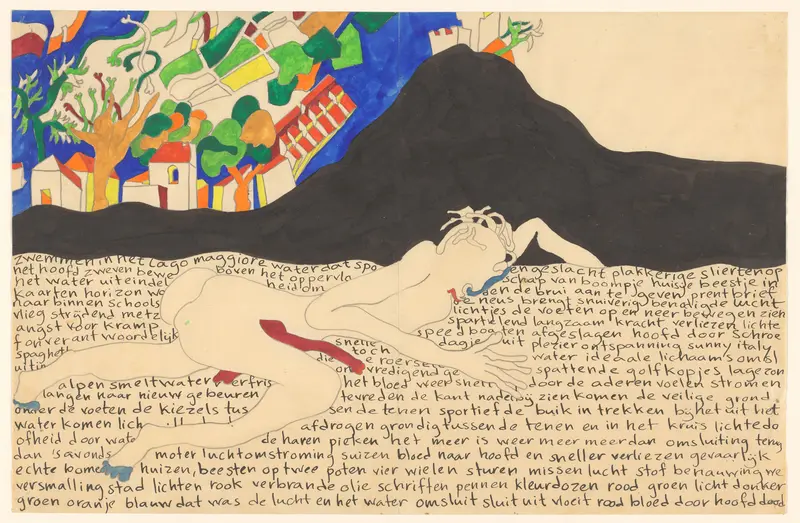 zwemmen in het Lago maggiore water dat spa
het hoofd zweven bewe boven het oppervla engeslacht plakkerige sliertenop
het water uiteinde heid in schap van boompje huisje beestje in
kaarten horizon wo den de brui aan te geven prent brief
naar binnen schools de neus brengt snuiverig benauwde lucht
vlieg strijdend metz lichtjes de voeten op en neer bewegen zich
angst voor kramp spartelend langzaam kracht verliezen lichte
f onverantwoordelijk speed boaten afgeslagen hoofd door schroe
spaghett snelle dagje uit plezier ontspanning sunny italy
uitin toch water ideale lichaamsomsl
die roerse spattende golfkopjes lagezon
on vredigende door de aderen voelen stromen
alpen smeltwater verfris het bloed weer snell
langen naar nieuw gebeuren tevreden de kant naderbij zien komen de veilige grond
onder de voeten de kiezels tus sen de tenen sportief de buik in trekken bij het uit het
water komen lich afdrogen grondig tussen de tenen en in het kruis lichte do
ofheid door wate de haren pieken het meer is weer meer dan omsluiting terug
dan 's avonds moter luchtomstroming suizen bloed naar hoofd en sneller verliezen gevaarlijk
echte bomen huizen, beesten op twee poten vier wielen sturen missen lucht stof benauwing we
versmalling stad lichten rook verbrande olie schriften pennen kleurdozen rood groen licht donker
groen oranje blauw dat was de lucht en het water omsluit sluit uit vloeit rood bloed door hoofd dood